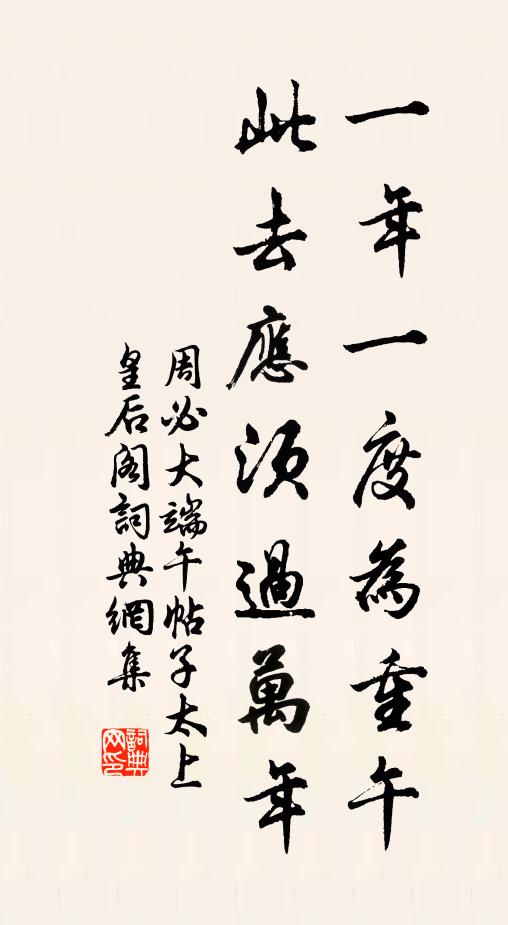 一年一度為重午
此去應須過萬年
周必大端午帖子太上
皇后阁詞典網集
詞典
网印